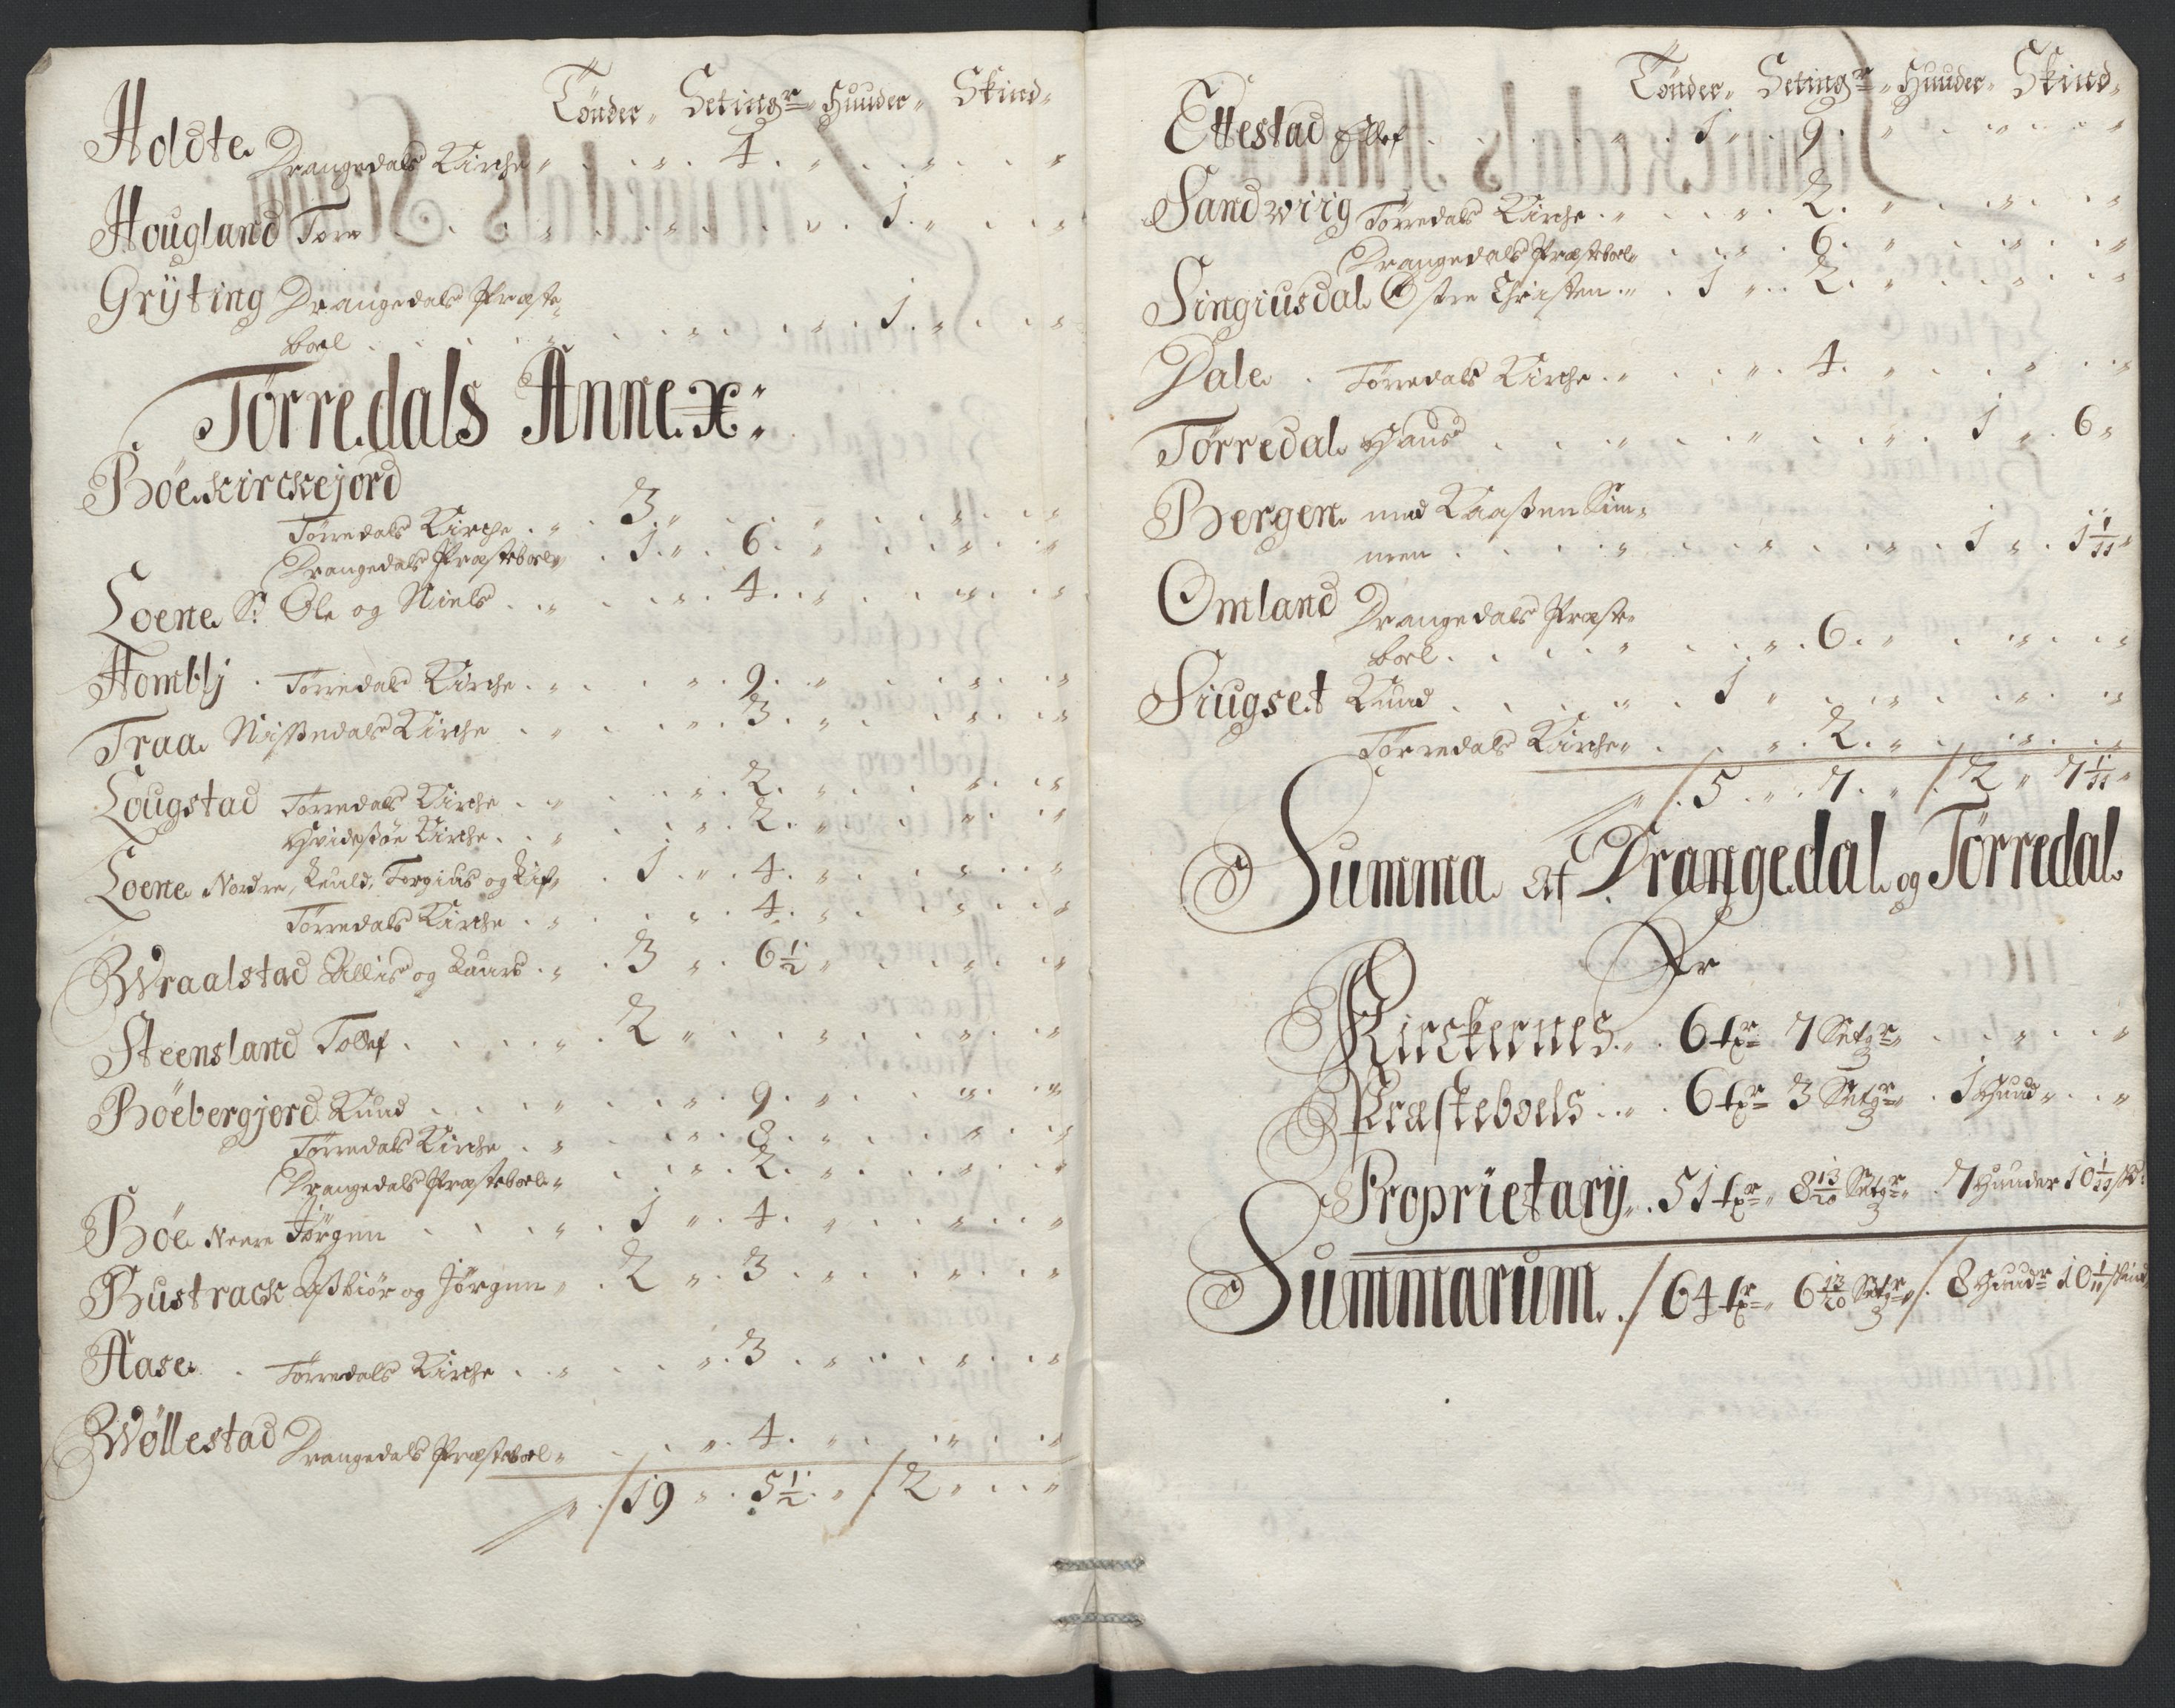 Tönder„ Setingr„ Huuder„ Skind„
Holdte Drangedals Kirche „ . . „ . 4 . „ . . „ . . „
Hougland Tore . . . „ . . „ . . „ . 1 . „ . . „
Grÿting Drangedals Præste„
boel . . . „ . . „ . . „ . 1 . „ . . „
Törredals Annex:
Böe kirckejord
Törredals Kirche . „ . 3 . „ . . „ . . „ . . „
Drangedals Præsteboel„ . 1 . „ . 6 . „ . . „ . . „
Loene Sr Ole og Niels . . „ . . „ . 4 . . „ . . „ . . „
Homblj . Törredals Kirche . „ . . „ . 9 . „ . . „ . . „
Traa Nissedals Kirche . „ . . „ . 3 . „ . . „ . . „
Lougstad Törredals Kirche . „ . . „ . 2 . „ . . „ . . „
Hvidesöe Kirche . „ . . „ . 2 . „ . . „ . . „
Loene Nordre, Leuld, Torgius og Lif„ . 1 . „ . 4 . „ . . „ . . „
Törredals Kirche . „ . . „ . 4 . „ . . „ . . „
Wraalstad Ullis og Laurs . „ . 3 „ . 6 1/2 „ . . „ . . „
Steensland Tollef . . . „ . 2 „ . . „ . . „ . . „
Böebergjord Knud . . . „ . . „ . 9 . „ . . „ . . „
Törredals Kirche . „ . . „ . 8 . „ . . „ . . „
Drangedals Præsteboel„ . . „ . 2 . „ . . „ . . „
Böe Neere Jörgen . . . „ . 1 „ . 4 . „ . . „ . . „
Bustrack Assbiör og Jörgen „ . 2 „ . 3 . „ . . „ . . „
Aase . Törredals Kirche . . „ . . „ . 3 . „ . . „ . . „
Wöllestad Drangedals Præsteboel„ . . „ . 4 . „ . . „ . . „
„ . / 19 „ . 5 1/2 . „ / . 2 „ . . „
Tönder„ Setingr„ Huuder„ Skind„
Ettestad Ellef . . . . „ . 1 „ . 9 . „ . . „ . . „
Sandwiig Törredals Kirche . „ . . „ . 2 . „ . . „ . . „
Drangedals Præsteboel„ . . „ . 6 . „ . . „ . . „
Singiusdal Östre Christen . „ . 1 „ . 2 . „ . . „ . . „
Dale . Törredals Kirche . „ . . „ . 4 . „ . . „ . . „
Törredal Hans . . . „ . . „ . . „ . 1 „ . 6 „
Bergen med Kaassen Sim„
men . . . . „ . . „ . . „ . 1 „ . 1 1/11 „
Omland Drangedals Præste„
boel . . . . „ . . „ . 6 . „ . . „ . . „
Siugset Knud . . . . „ . 1 „ . . „ . . „ . . „
Törredals Kirche„ . . „ . 2 . „ . . „ . . „
„ / . 5 . „ . 7 . „ / . 2 „ 7 1/11 „
Summa Af Drangedal og Törredal
Er
Kirckernes . „ . 6 tr 7 Setgr„ . . „ . . „
Præsteboels . „ . 6 tr 3 Setgr„ . 1 Huud „ . . „
Proprietarij „ . 51 tr„ 8 13/20 Setgr„ . 7 Huuder 10 1/11 sk:
Summarum . / 64 tr„ 6 13/20 Setgr„ / . 8 Huudr 10 1/11 skind